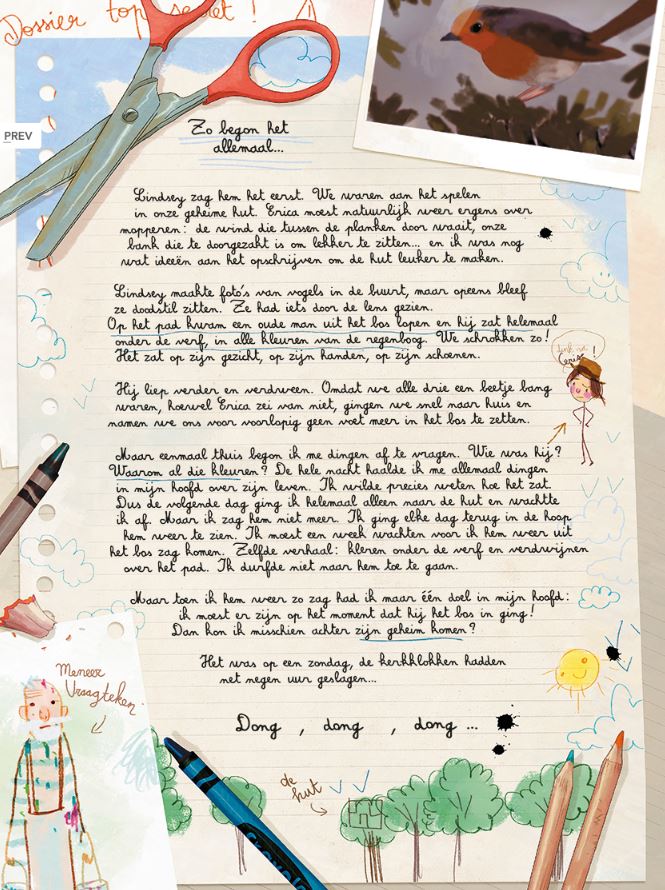 Dossier top secret !
PREV
Zo begon het
allemaal...
Lindsey zag hem het eerst. We waren aan het spelen
in onze geheime hut. Erica moest natuurlijk weer ergens over
mopperen: de wind die tussen de planken door waait, onze
bank die te doorgezakt is om lekker te zitten... en ik was nog
wat ideeën aan het opschrijven om de hut leuker te maken.
Lindsey maakte foto's van vogels in de buurt, maar opeens bleef
ze doodstil zitten. Ze had iets door de lens gezien.
Op het pad kwam een oude man uit het bos lopen en hij zat helemaal
onder de verf, in alle kleuren van de regenboog. We schrokken zo!
Het zat op zijn gezicht, op zijn handen, op zijn schoenen.
Hij liep verder en verdween. Omdat we alle drie een beetje bang
waren, hoewel Erica zei van niet, gingen we snel naar huis en
namen we ons voor voorlopig geen voet meer in het bos te zetten.
Maar eenmaal thuis begon ik me dingen af te vragen. Wie was hij?
Waarom al die kleuren? De hele nacht haalde ik me allemaal dingen
in mijn hoofd over zijn leven. Ik wilde precies weten hoe het zat.
Dus de volgende dag ging ik helemaal alleen naar de hut en wachtte
ik af. Maar ik zag hem niet meer. Ik ging elke dag terug in de hoop
hem weer te zien. Ik moest een week wachten voor ik hem weer uit
het bos zag komen. Zelfde verhaal: kleren onder de verf en verdwijnen
over het pad. Ik durfde niet naar hem toe te gaan.
Maar toen ik hem weer zo zag had ik maar één doel in mijn hoofd:
ik moest er zijn op het moment dat hij het bos in ging!
Dan kon ik misschien achter zijn geheim komen?
Het was op een zondag, de kerkklokken hadden
net negen uur geslagen...
Dong , dong , dong ...
Meneer
Vraagteken
de
hut